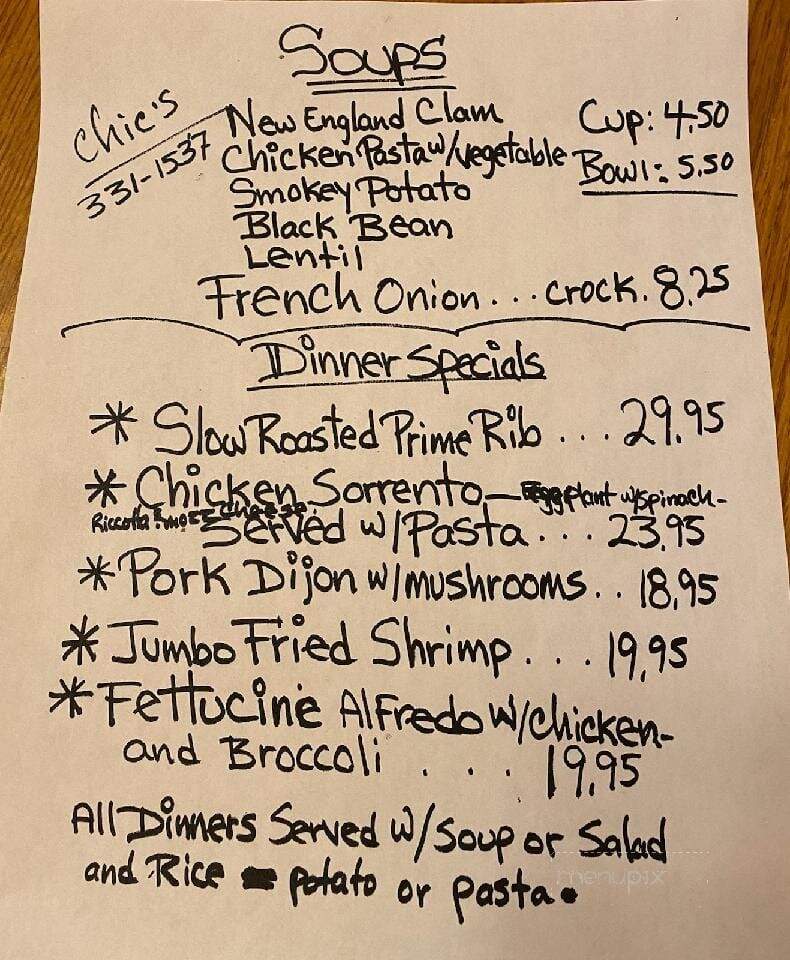 Soups
Chic's
331-1537
New England Clam
Chicken Pasta w/vegetable
Smokey Potato
Black Bean
Lentil
Cup: 4.50
Bowl: 5.50
French Onion... crock. 8.25
Dinner Specials
* Slow Roasted Prime Rib ... 29.95
* Chicken Sorrento - Eggplant w/spinach-
Riccotta & mozz cheese.
Served w/Pasta... 23.95
* Pork Dijon w/mushrooms.. 18.95
* Jumbo Fried Shrimp... 19.95
* Fettucine Alfredo w/chicken-
and Broccoli ... 19.95
All Dinners Served w/soup or Salad
and Rice potato or pasta.
menupix